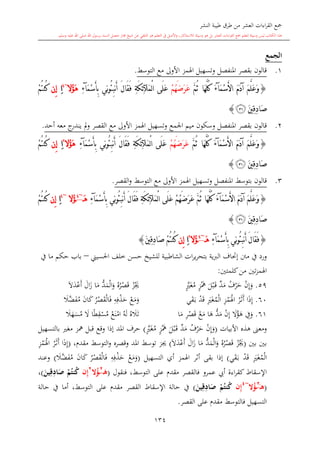 جمع القراءات العشر من طرق طيبة النشر
الجمع
١. قالون بقصر المنفصل وتسهيل الهمز الأولى مع التوسط.
﴿ وَعَلَّمَ ءَادَمَ ٱلْأَسْمَآءَ كُلَّهَا ثُمَّ عَرَضَهُمْ عَلَى ٱلْمَلَٰٓئِكَةِ فَقَالَ أَنۢبِـُٔونِى بِأَسْمَآءِ هَٰٓؤُلَآءِ إِن كُنتُمْ
صَٰدِقِينَ ﴿٣١﴾ ﴾
٢. قالون بقصر المنفصل وسكون ميم الجمع وتسهيل الهمز الأولى مع القصر ولم يندرج معه أحد.
﴿ وَعَلَّمَ ءَادَمَ ٱلْأَسْمَآءَ كُلَّهَا ثُمَّ عَرَضَهُمْ عَلَى ٱلْمَلَٰٓئِكَةِ فَقَالَ أَنۢبِـُٔونِى بِأَسْمَآءِ هَٰٓؤُلَآءِ إِن كُنتُمْ
صَٰدِقِينَ ﴿٣١﴾ ﴾
٣. قالون بتوسط المنفصل وتسهيل الهمز الأولى مع التوسط والقصر.
﴿ وَعَلَّمَ ءَادَمَ ٱلْأَسْمَآءَ كُلَّهَا ثُمَّ عَرَضَهُمْ عَلَى ٱلْمَلَٰٓئِكَةِ فَقَالَ أَنۢبِـُٔونِى بِأَسْمَآءِ هَٰٓؤُلَآءِ إِن كُنتُمْ
صَٰدِقِينَ ﴿٣١﴾ ﴾
﴿ فَقَالَ أَنۢبِـُٔونِى بِأَسْمَآءِ هَٰٓؤُلَآءِ إِن كُنتُمْ صَٰدِقِينَ ﴾
ورد في متن إتحاف البرية بتحريرات الشاطبية للشيخ حسن خلف الحسيني – باب حكم ما في
الهمزتين من كلمتين:
٥٩. وَإِنْ حَرْفُ مَدٍّ قَبْلَ هَمْزٍ مُغَيَّرٍ يَجُزْ قَصْرُهُ وَالْمَدُّ مَا زَالَ أَعْدَلَا
٦٠. إِذَا أَثَرُ الْهَمْزِ الْمُغَيَّرِ قَدْ بَقِيَ وَمَعْ حَذْفِهِ فَالْقَصْرُ كَانَ مُفَضَّلَا
٦١. وَفِي هَؤُلَا إِنْ مَدَّ هَا مَعَ قَصْرِ مَا تَلَاهُ لَهُ امْنَعْ مُسْقِطًا لَا مُسَهِّلَا
ومعنى هذه الأبيات (وَإِنْ حَرْفُ مَدٍّ قَبْلَ هَمْزٍ مُغَيَّرٍ) حرف المد إذا وقع قبل همز مغير بالتسهيل
بين بين (يَجُزْ قَصْرُهُ وَالْمَدُّ مَا زَالَ أَعْدَلَا) يجوز توسط المد وقصره والتوسط مقدم، (إِذَا أَثَرُ الْهَمْزِ
الْمُغَيَّرِ قَدْ بَقِيَ) إذا بقى أثر الهمز أي التسهيل (وَمَعْ حَذْفِهِ فَالْقَصْرُ كَانَ مُفَضَّلَا) وعند
الإسقاط كقراءة أبي عمرو فالقصر مقدم على التوسط، فنقول (هَٰٓؤُلَآ إِن كُنتُمْ صَٰدِقِينَ)،
(هَٰٓؤُلَآ إِن كُنتُمْ صَٰدِقِينَ) في حالة الإسقاط القصر مقدم على التوسط، أما في حالة
التسهيل فالتوسط مقدم على القصر.
١٣٤